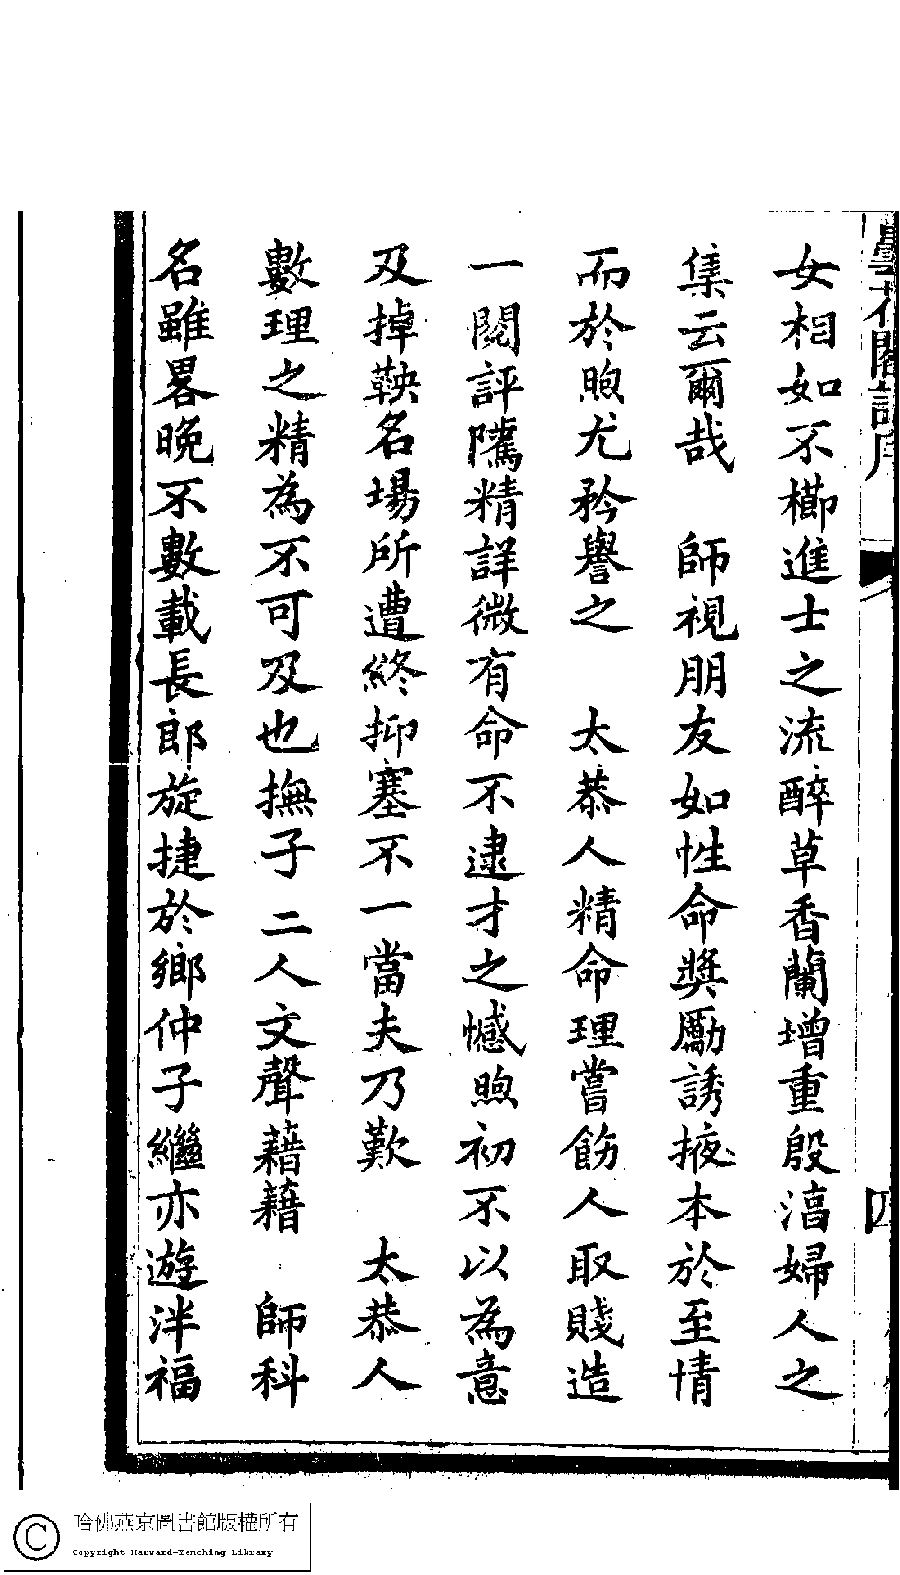 曇花閣詩序
四
女相如不櫛進士之流醉草香蘭增重殷淔婦人之
集云爾哉　師視朋友如性命獎勵誘掖本於至情
而於煦尤矜譽之　太恭人精命理嘗飭人取賤造
一閱評隲精詳微有命不逮才之憾煦初不以為意
及掉鞅名場所遭終抑塞不一當夫乃歎　太恭人
數理之精為不可及也撫子二人文聲藉藉　師科
名雖畧晚不數載長郎旋捷於鄉仲子繼亦遊泮福
哈佛燕京圖書館版權所有
Copyright Harvard-Yenching Library